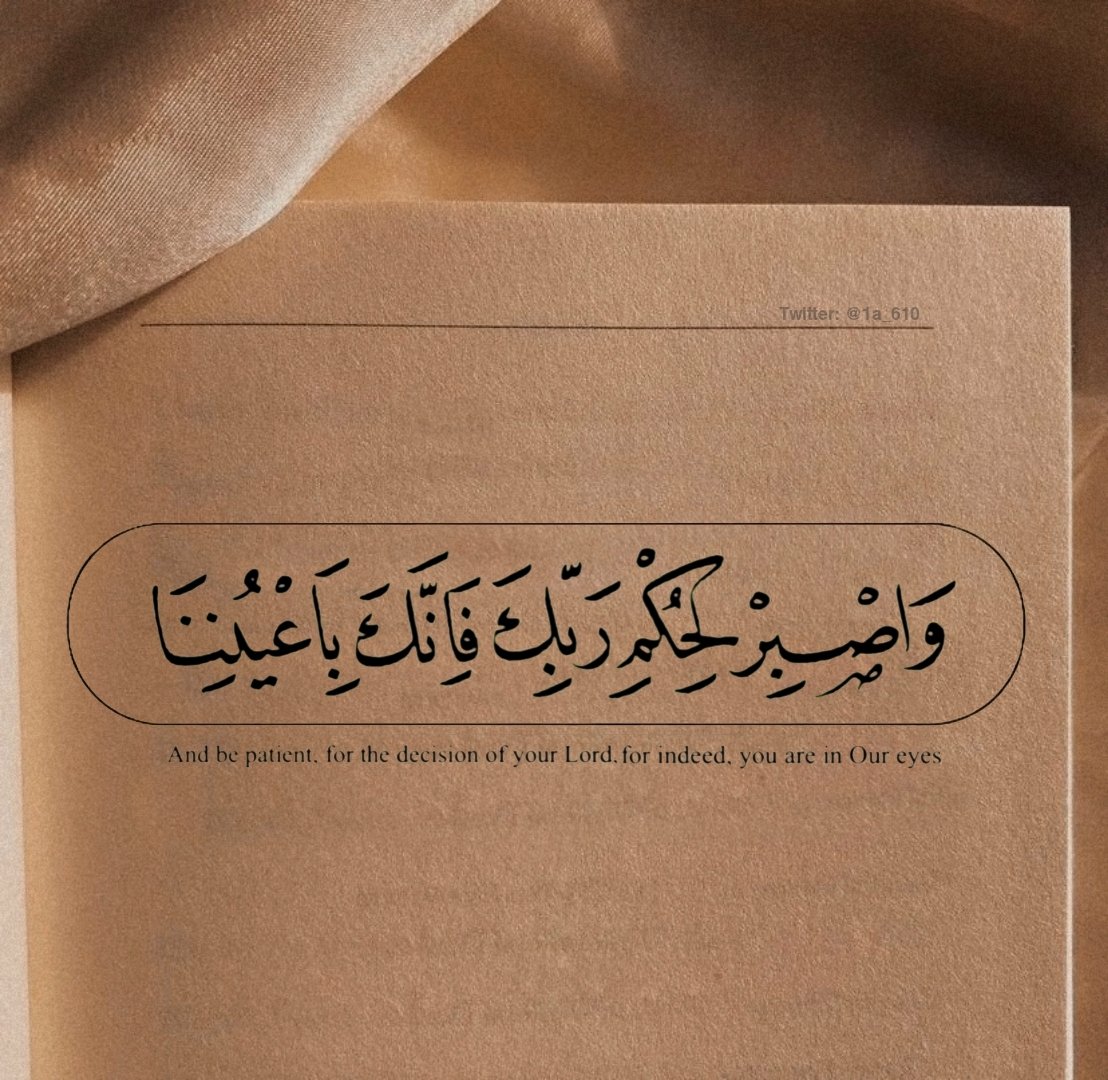 Twitter: @1a_610
وَاصْبِرْ لِحُكْمِ رَبِّكَ فَاِنَّكَ بِاَعْيُنِنَا
And be patient, for the decision of your Lord, for indeed, you are in Our eyes